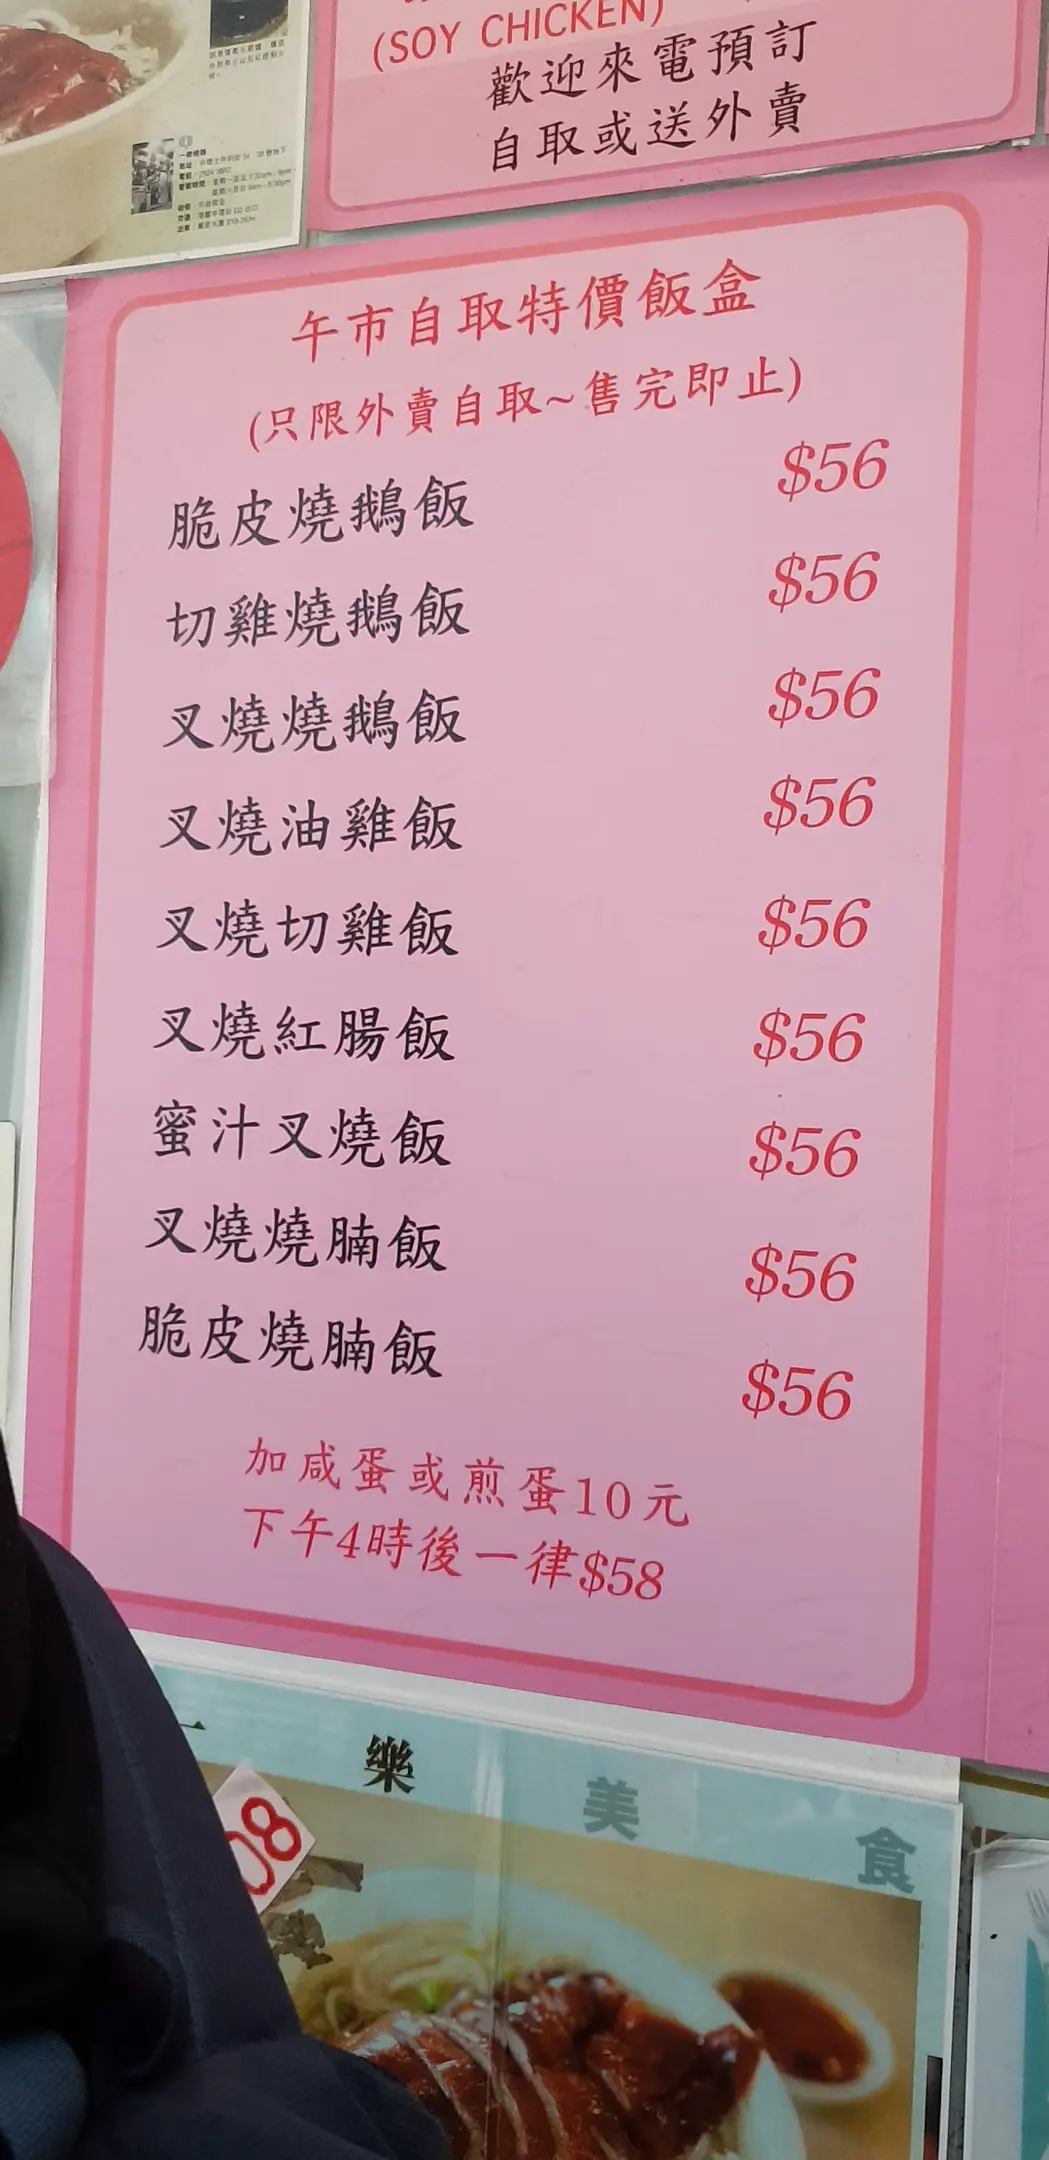 (SOY CHICKEN)
歡迎來電預訂
自取或送外賣
午市自取特價飯盒
(只限外賣自取~售完即止)
脆皮燒鵝飯 $56
切雞燒鵝飯 $56
叉燒燒鵝飯 $56
叉燒油雞飯 $56
叉燒切雞飯 $56
叉燒紅腸飯 $56
蜜汁叉燒飯 $56
叉燒燒腩飯 $56
脆皮燒腩飯 $56
加咸蛋或煎蛋10元
下午4時後一律$58
一樂美食
08